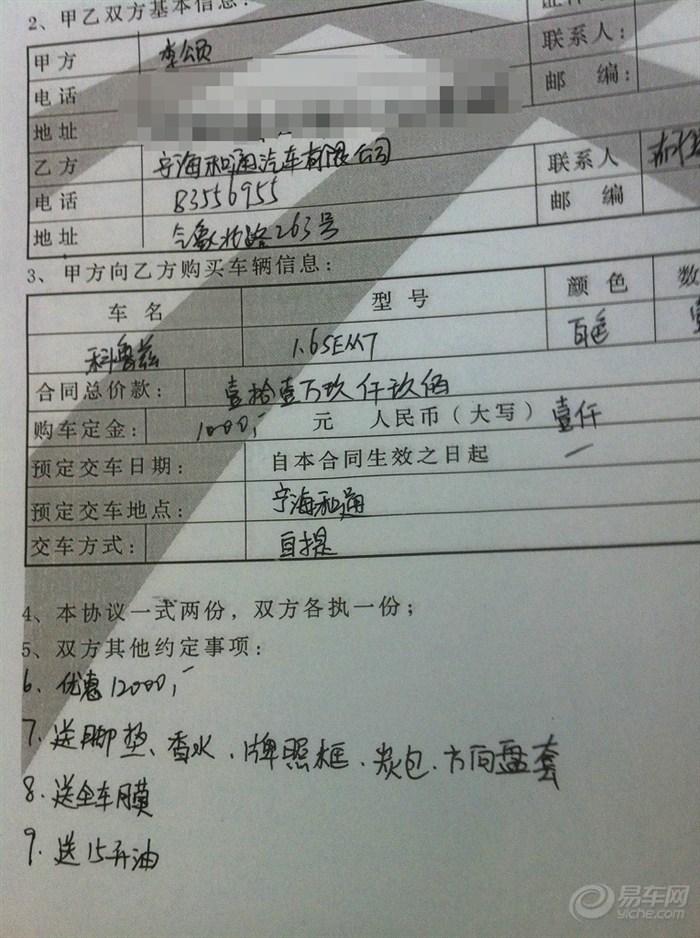 2、甲乙双方基本信息：
甲方 李颂
联系人：
电话
邮 编：
地址
乙方 宁海和通汽车有限公司 联系人
电话 83556955 邮 编
地址 气象北路263号
3、甲方向乙方购买车辆信息：
车 名 型 号 颜 色 数
科鲁兹 1.6SEMT 白色
合同总价款： 壹拾壹万玖仟玖佰
购车定金： 1000,- 元 人民币（大写） 壹仟
预定交车日期： 自本合同生效之日起
预定交车地点： 宁海和通
交车方式： 自提
4、本协议一式两份，双方各执一份；
5、双方其他约定事项：
6、优惠12000,-
7、送脚垫、香水、牌照框、炭包、方向盘套
8、送全车膜
9、送15升油
易车网
yiche.com